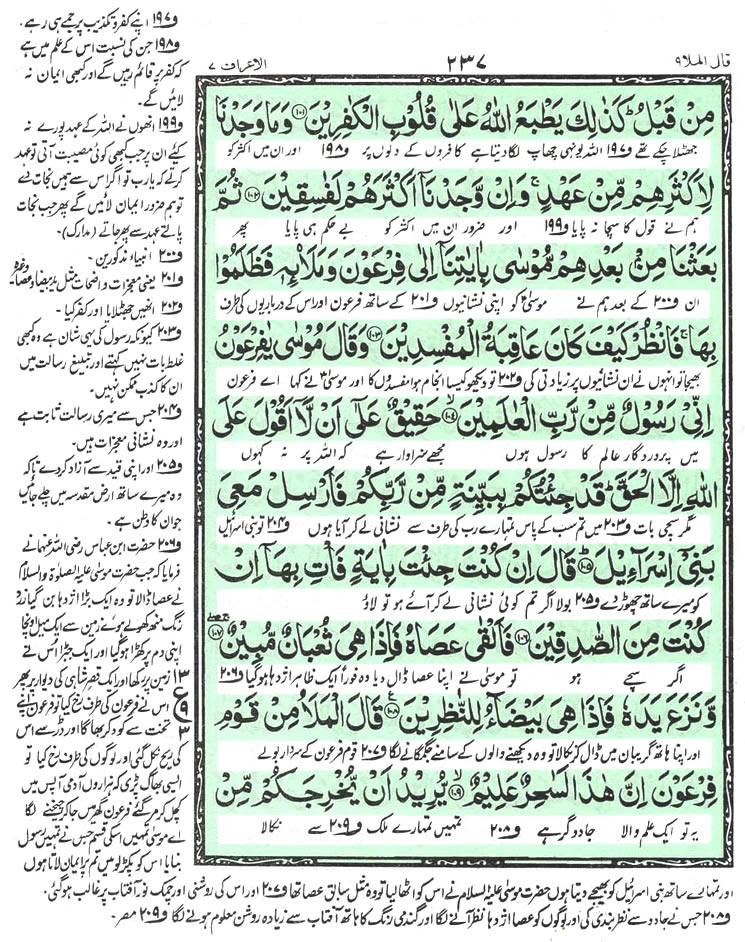 قال الملا ۹
۲۳۷
الاعراف ۷
مِنْ قَبْلُ ؕ كَذٰلِكَ يَطْبَعُ اللّٰهُ عَلٰى قُلُوْبِ الْكٰفِرِيْنَ ﴿۱۰۱﴾ وَمَا وَجَدْنَا
جھٹلا چکے تھے و۱۹۷ اللہ یونہی چھاپ لگا دیتا ہے کافروں کے دلوں پر و۱۹۸ اور ان میں اکثر کو
لِاَكْثَرِهِمْ مِّنْ عَهْدٍ ۚ وَاِنْ وَّجَدْنَاۤ اَكْثَرَهُمْ لَفٰسِقِيْنَ ﴿۱۰۲﴾ ثُمَّ
ہم نے قول کا سچا نہ پایا و۱۹۹ اور ضرور ان میں اکثر کو بے حکم ہی پایا پھر
بَعَثْنَا مِنْۢ بَعْدِهِمْ مُّوْسٰى بِاٰيٰتِنَاۤ اِلٰى فِرْعَوْنَ وَمَلَا۠ىِٕهٖ فَظَلَمُوْا
ان و۲۰۰ کے بعد ہم نے موسیٰ کو اپنی نشانیوں و۲۰۱ کے ساتھ فرعون اور اس کے درباریوں کی طرف
بِهَا ۚ فَانْظُرْ كَيْفَ كَانَ عَاقِبَةُ الْمُفْسِدِيْنَ ﴿۱۰۳﴾ وَقَالَ مُوْسٰى يٰفِرْعَوْنُ
بھیجا تو انہوں نے ان نشانیوں پر زیادتی کی و۲۰۲ تو دیکھو کیسا انجام ہوا مفسدوں کا اور موسیٰ نے کہا اے فرعون
اِنِّىْ رَسُوْلٌ مِّنْ رَّبِّ الْعٰلَمِيْنَ ﴿۱۰۴﴾ حَقِيْقٌ عَلٰۤى اَنْ لَّاۤ اَقُوْلَ عَلَى
میں پروردگار عالم کا رسول ہوں مجھے سزاوار ہے کہ اللہ پر نہ کہوں
اللّٰهِ اِلَّا الْحَقَّ ؕ قَدْ جِئْتُكُمْ بِبَيِّنَةٍ مِّنْ رَّبِّكُمْ فَاَرْسِلْ مَعِىَ
مگر سچی بات و۲۰۳ میں تم سب کے پاس تمہارے رب کی طرف سے نشانی لے کر آیا ہوں و۲۰۴ تو بنی اسرائیل
بَنِىْۤ اِسْرَآءِيْلَ ﴿۱۰۵﴾ قَالَ اِنْ كُنْتَ جِئْتَ بِاٰيَةٍ فَاْتِ بِهَاۤ اِنْ
کو میرے ساتھ چھوڑ دے و۲۰۵ بولا اگر تم کوئی نشانی لے کر آئے ہو تو لاؤ
كُنْتَ مِنَ الصّٰدِقِيْنَ ﴿۱۰۶﴾ فَاَلْقٰى عَصَاهُ فَاِذَا هِىَ ثُعْبَانٌ مُّبِيْنٌ ﴿۱۰۷﴾
اگر سچے ہو تو موسیٰ نے اپنا عصا ڈال دیا وہ فوراً ایک ظاہر اژدہا ہو گیا و۲۰۶
وَّنَزَعَ يَدَهٗ فَاِذَا هِىَ بَيْضَآءُ لِلنّٰظِرِيْنَ ﴿۱۰۸﴾ قَالَ الْمَلَاُ مِنْ قَوْمِ
اور اپنا ہاتھ گریبان میں ڈال کر نکالا تو وہ دیکھنے والوں کے سامنے جگمگانے لگا و۲۰۷ قوم فرعون کے سردار بولے
فِرْعَوْنَ اِنَّ هٰذَا لَسٰحِرٌ عَلِيْمٌ ﴿۱۰۹﴾ يُّرِيْدُ اَنْ يُّخْرِجَكُمْ مِّنْ
یہ تو ایک علم والا جادوگر ہے و۲۰۸ تمہیں تمہارے ملک و۲۰۹ سے نکالا
و۱۹۷ اپنے کفر و تکذیب پر جمے ہی رہے۔
و۱۹۸ جن کی نسبت اس کے علم میں ہے
کہ کفر پر قائم رہیں گے اور کبھی ایمان نہ
لائیں گے۔
و۱۹۹ انھوں نے اللہ کے عہد پورے نہ
کیے ان پر جب کبھی کوئی مصیبت آتی تو عہد
کرتے کہ یارب تو اگر اس سے ہمیں نجات دے
تو ہم ضرور ایمان لائیں گے پھر جب نجات
پاتے عہد سے پھر جاتے (مدارک)۔
و۲۰۰ انبیاء مذکورین۔
و۲۰۱ یعنی معجزات واضحات مثل ید بیضا و عصا وغیرہ
و۲۰۲ انھیں جھٹلایا اور کفر کیا۔
و۲۰۳ کیونکہ رسول کی یہی شان ہے وہ کبھی
غلط بات نہیں کہتے اور تبلیغ رسالت میں
ان کا کذب ممکن نہیں۔
و۲۰۴ جس سے میری رسالت ثابت ہے
اور وہ نشانی معجزات ہیں۔
و۲۰۵ اور اپنی قید سے آزاد کر دے تاکہ
وہ میرے ساتھ ارض مقدسہ میں چلے جائیں
جو ان کا وطن ہے۔
و۲۰۶ حضرت ابن عباس رضی اللہ عنہما نے
فرمایا کہ جب حضرت موسیٰ علیہ الصلوٰۃ والسلام
نے عصا ڈالا تو وہ ایک بڑا اژدہا بن گیا زرد
رنگ منھ کھولے ہوئے زمین سے ایک میل اونچا
اپنی دم پر کھڑا ہو گیا اور ایک جبڑا اس نے
زمین پر رکھا اور ایک قصر شاہی کی دیوار پر پھر
اس نے فرعون کی طرف رخ کیا تو فرعون اپنے
تخت سے کود کر بھاگا اور ڈر سے اس
کی ریح نکل گئی اور لوگوں کی طرف رخ کیا تو
ایسی بھاگ پڑی کہ ہزاروں آدمی آپس میں
کچل کر مر گئے فرعون گھر میں جا کر چیخنے لگا
اے موسیٰ تمہیں اس کی قسم جس نے تمہیں رسول
بنایا اس کو پکڑ لو میں تم پر ایمان لاتا ہوں
۱۳
ع
۹
۳
اور تمہارے ساتھ بنی اسرائیل کو بھیجے دیتا ہوں حضرت موسیٰ علیہ السلام نے اس کو اٹھا لیا تو وہ مثل سابق عصا تھا و۲۰۷ اور اس کی روشنی اور چمک نور آفتاب پر غالب ہو گئی۔
و۲۰۸ جس نے جادو سے نظر بندی کی اور لوگوں کو عصا اژدہا نظر آنے لگا اور گندمی رنگ کا ہاتھ آفتاب سے زیادہ روشن معلوم ہونے لگا و۲۰۹ مصر۔